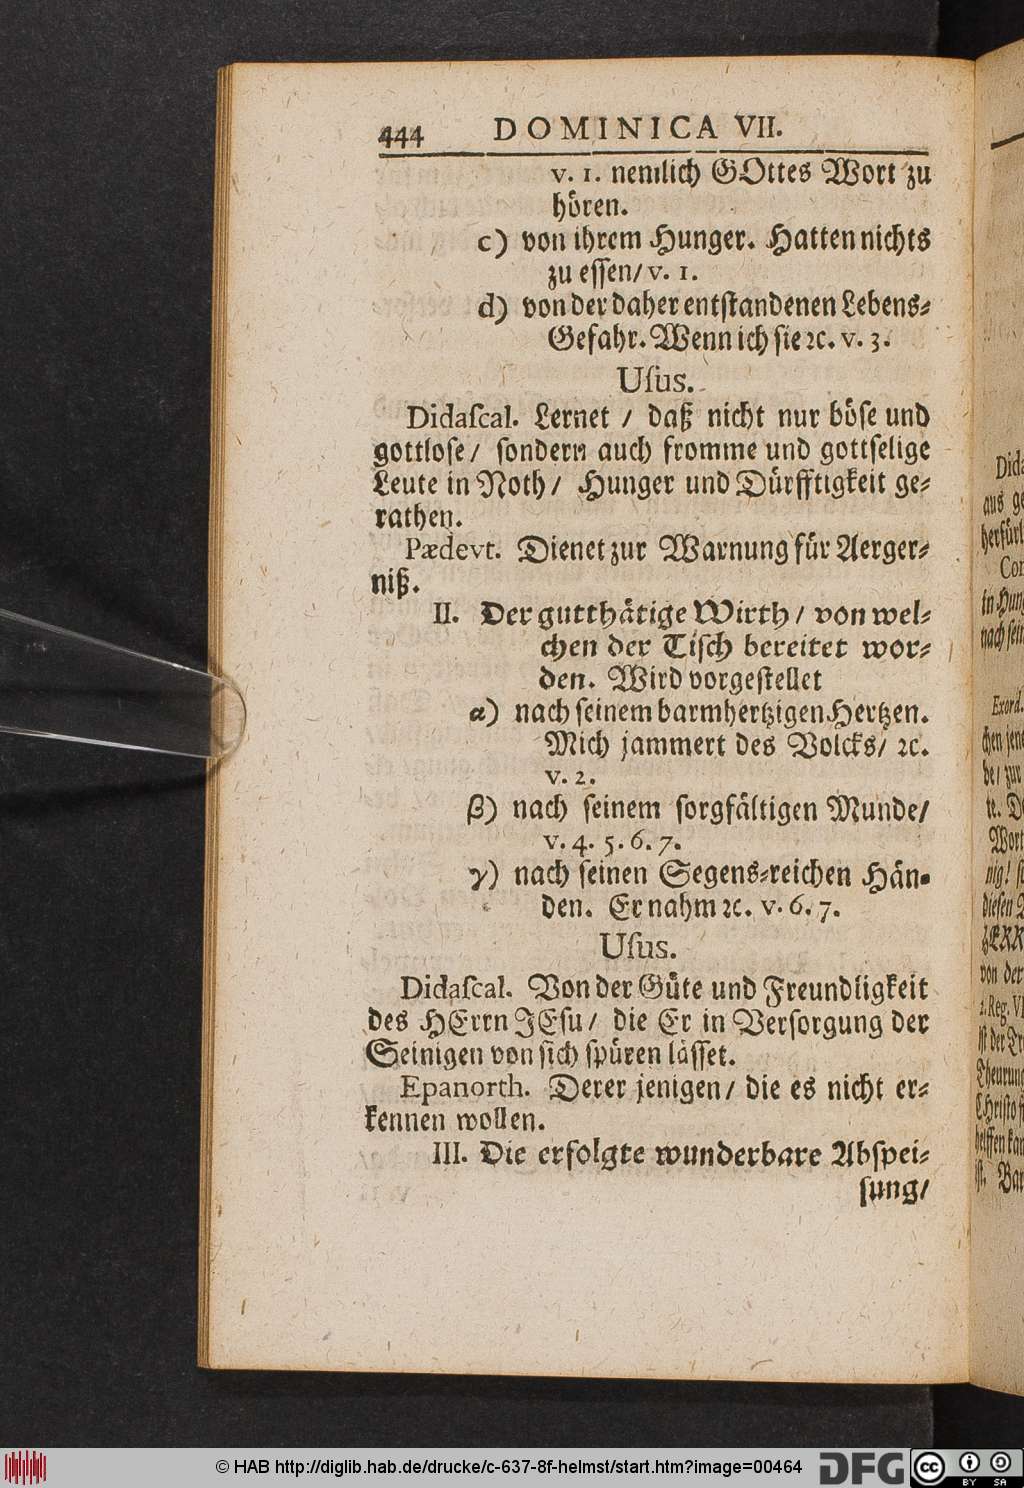 444 DOMINICA VII.
v. 1. nemlich GOttes Wort zu
hören.
c) von ihrem Hunger. Hatten nichts
zu essen/ v. 1.
d) von der daher entstandenen Lebens-
Gefahr. Wenn ich sie ꝛc. v. 3.
Uſus.
Didaſcal. Lernet / daß nicht nur böse und
gottlose/ sondern auch fromme und gottselige
Leute in Noth/ Hunger und Dürfftigkeit ge-
rathen.
Pædevt. Dienet zur Warnung für Aerger-
niß.
II. Der gutthätige Wirth/ von wel-
chen der Tisch bereitet wor-
den. Wird vorgestellet
α) nach seinem barmhertzigen Hertzen.
Mich jammert des Volcks/ ꝛc.
v. 2.
β) nach seinem sorgfältigen Munde/
v. 4. 5. 6. 7.
γ) nach seinen Segens-reichen Hän-
den. Er nahm ꝛc. v. 6. 7.
Uſus.
Didaſcal. Von der Güte und Freundligkeit
des HErrn JEsu/ die Er in Versorgung der
Seinigen von sich spüren lässet.
Epanorth. Derer jenigen/ die es nicht er-
kennen wollen.
III. Die erfolgte wunderbare Abspei-
sung/
Dida
aus ge
Con
in Hung
nach sein
Exord.
chen jene
be/ zur
te. D
Wort
nig! si
diesen
von der
1. Reg. VI
ist der Tr
Theurung
Christo
helffen kan
ist. Bar
© HAB http://diglib.hab.de/drucke/c-637-8f-helmst/start.htm?image=00464
DFG
cc BY SA